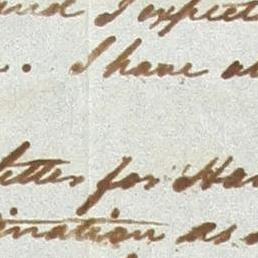 and I expect
. I have
letter for Har
ination as